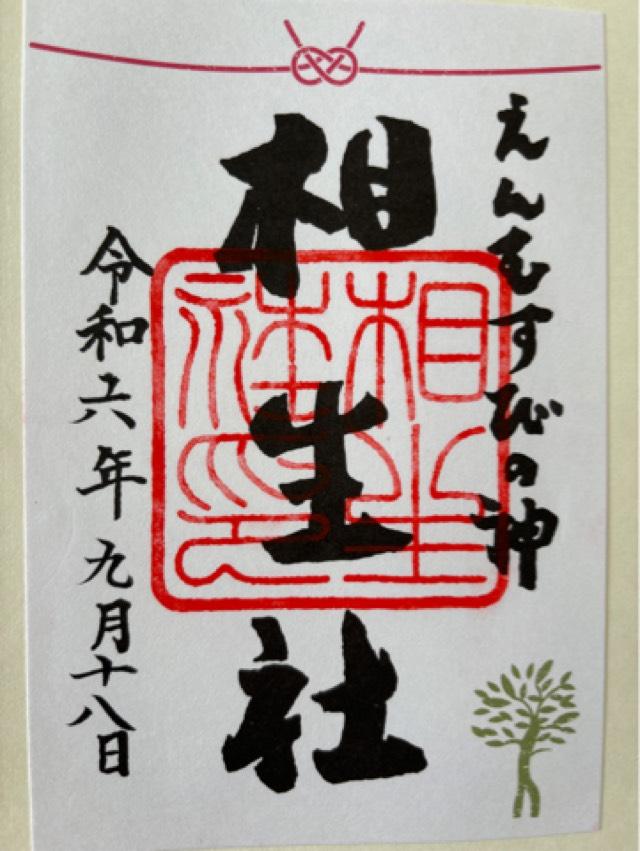 えんむすびの神
相生社
相生社印
令和六年九月十八日